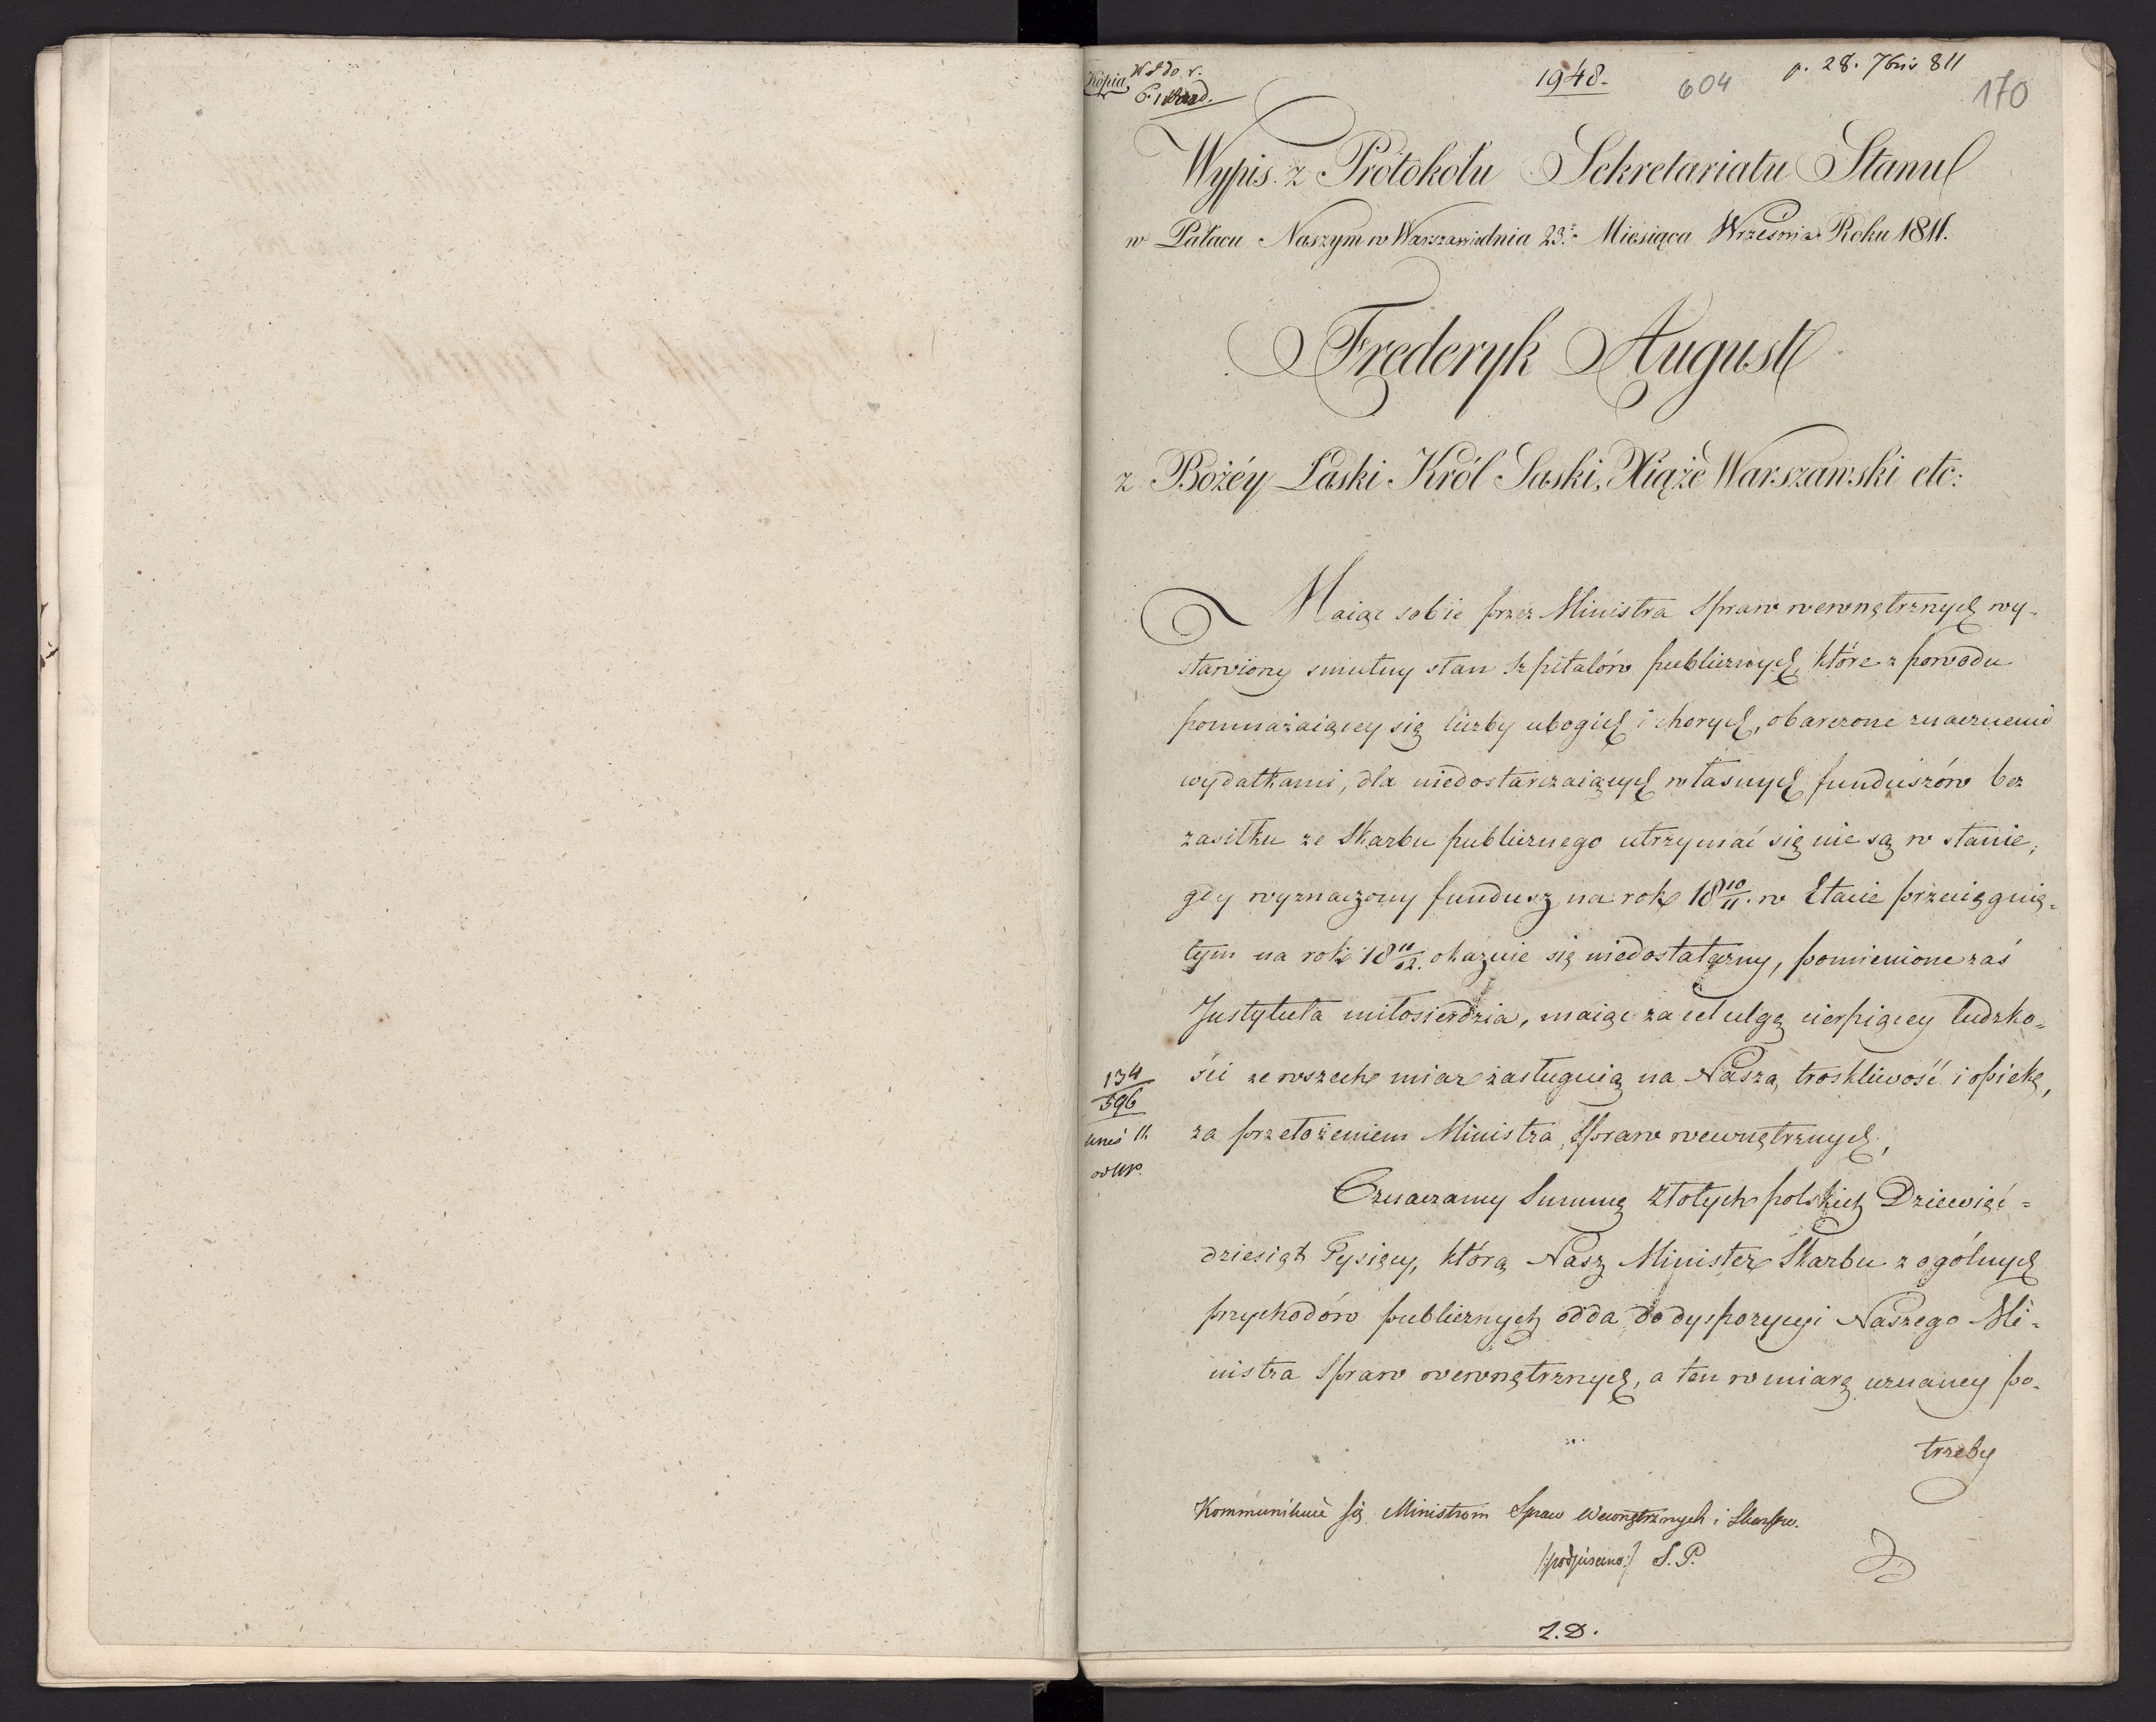 Kopia
1948.
604
p. 28. 7bris 811
170
Wypis z Protokołu Sekretariatu Stanu
w Pałacu Naszym w Warszawie dnia 23. Miesiąca Września Roku 1811.
Frederyk August
z Bożéy Łaski Król Saski, Xiążę Warszawski etc:
Maiąc sobie przez Ministra Spraw wewnętrznych wy-
stawiony smutny stan Szpitalów publicznych, które z powodu
pomnażaiącey się liczby ubogich i chorych, obarczone znacznemi
wydatkami, dla niedostarczaiących własnych funduszów bez
zasiłku ze Skarbu publicznego utrzymać się nie są w stanie,
gdy wyznaczony fundusz na rok 18 10/11. w Etacie przeciągnię-
tym na rok 18 11/12. okazuie się niedostateczny, pomienione zaś
Instytuta miłosierdzia, maiąc za cel ulgę cierpiącey ludzko-
ści ze wszech miar zasługuią na Naszą troskliwość i opiekę,
za przełożeniem Ministra Spraw wewnętrznych,
134
596
Oznaczamy Summę złotych polskich Dziewięć=
dziesiąt Tysięcy, którą Nasz Minister Skarbu z ogólnych
przychodów publicznych odda do dyspozycyi Naszego Mi-
nistra Spraw wewnętrznych, a ten w miarę uznaney po-
trzeby
Kommunikuie się Ministrom Spraw Wewnętrznych i Skarbu.
/:podpisano:/ S. P.